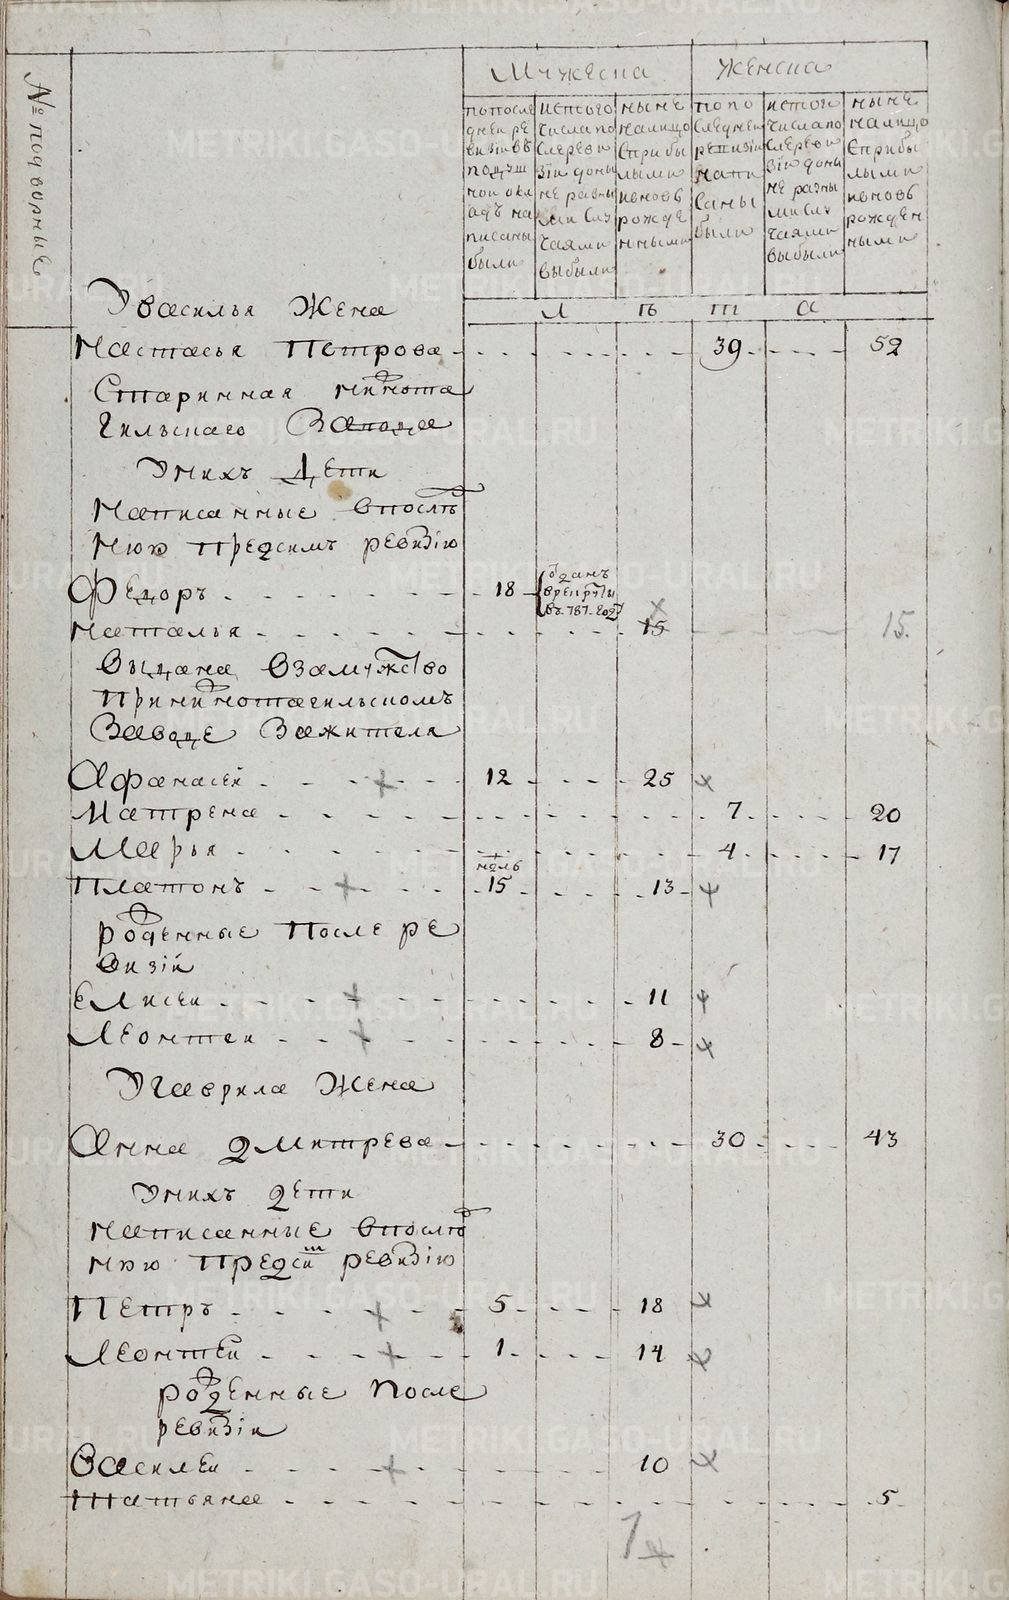 № подворные
Мужеска
Женска
попосле
днеи ре
визіи въ
подуш
нои окл
адъ на
писаны
были
истого
числа по
слерево
зіи доны
не разны
ми слу
чаями
выбыли
ныне
налицо
сприбы
лыми
ивновь
рожде
нными
попо
следнеи
ревизіи
напи
саны
были
истого
числа по
слерево
зіи доны
не разны
ми слу
чаями
выбыли
ныне
налицо
сприбы
лыми
ивновь
рожден
ными
Л ѣ т а
Увасилья Жена
Настасья Петрова 39 52
Старинная нижнота
гильскаго Завода
Уних Дети
Написанные впослѣд
нюю предсимъ ревизію
Федоръ 18 отданъ
врекруты
въ 787 году
Наталья 15 15.
Выдана Взамужство
Принижнотагильскомъ
Заводе Зажителя
Афанасеи 12 25
Матрена 7 20
Марья 4 17
Платонъ 15 нель 13
рожденные После ре
визіи
Елисеи 11
Леонтеи 8
Угаврила Жена
Анна Дмитрева 30 43
Унихъ Дети
написанные впослѣд
нюю Предсим ревизію
Петръ 5 18
Леонтеи 1 14
рожденные После
ревизіи
Василеи 10
Татьяна 5
7
METRIKI.GASO-URAL.RU